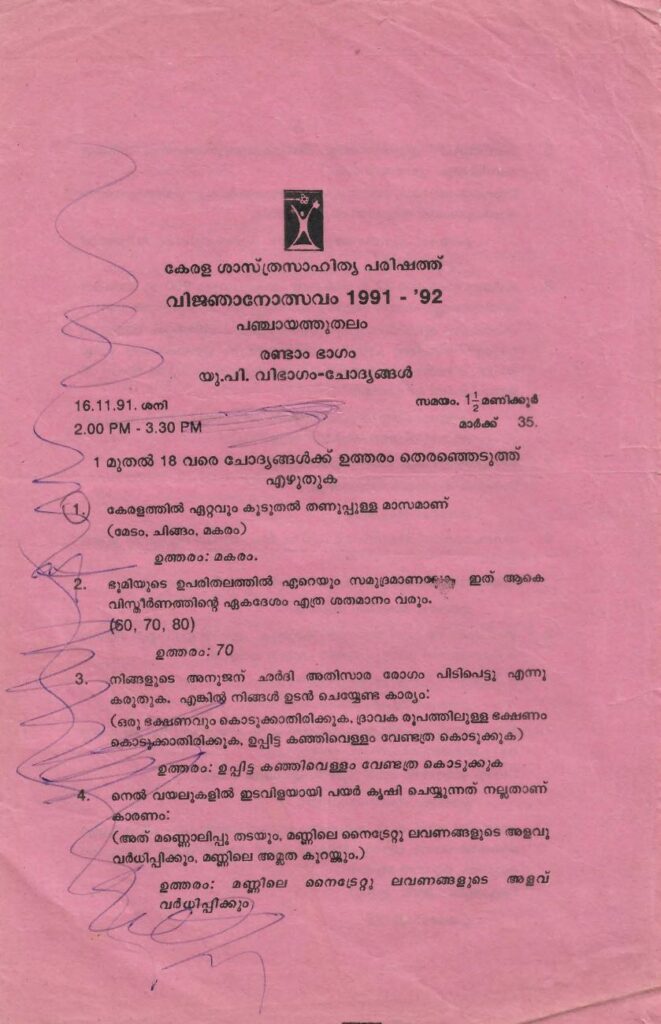 കേരള ശാസ്ത്രസാഹിത്യ പരിഷത്ത്
വിജ്ഞാനോത്സവം 1991 - '92
പഞ്ചായത്തുതലം
രണ്ടാം ഭാഗം
യു.പി. വിഭാഗം-ചോദ്യങ്ങൾ
16.11.91. ശനി സമയം. 1½ മണിക്കൂർ
2.00 PM - 3.30 PM മാർക്ക് 35.
1 മുതൽ 18 വരെ ചോദ്യങ്ങൾക്ക് ഉത്തരം തെരഞ്ഞെടുത്ത്
എഴുതുക
1. കേരളത്തിൽ ഏറ്റവും കൂടുതൽ തണുപ്പുള്ള മാസമാണ്
(മേടം, ചിങ്ങം, മകരം)
ഉത്തരം: മകരം.
2. ഭൂമിയുടെ ഉപരിതലത്തിൽ ഏറെയും സമുദ്രമാണല്ലോ. ഇത് ആകെ
വിസ്തീർണത്തിന്റെ ഏകദേശം എത്ര ശതമാനം വരും.
(60, 70, 80)
ഉത്തരം: 70
3. നിങ്ങളുടെ അനുജന് ഛർദി അതിസാര രോഗം പിടിപെട്ടു എന്നു
കരുതുക. എങ്കിൽ നിങ്ങൾ ഉടൻ ചെയ്യേണ്ട കാര്യം:
(ഒരു ഭക്ഷണവും കൊടുക്കാതിരിക്കുക, ദ്രാവക രൂപത്തിലുള്ള ഭക്ഷണം
കൊടുക്കാതിരിക്കുക, ഉപ്പിട്ട കഞ്ഞിവെള്ളം വേണ്ടത്ര കൊടുക്കുക)
ഉത്തരം: ഉപ്പിട്ട കഞ്ഞിവെള്ളം വേണ്ടത്ര കൊടുക്കുക
4. നെൽ വയലുകളിൽ ഇടവിളയായി പയർ കൃഷി ചെയ്യുന്നത് നല്ലതാണ്
കാരണം:
(അത് മണ്ണൊലിപ്പു തടയും, മണ്ണിലെ നൈട്രേറ്റു ലവണങ്ങളുടെ അളവു
വർധിപ്പിക്കും, മണ്ണിലെ അമ്ലത കുറയ്ക്കും.)
ഉത്തരം: മണ്ണിലെ നൈട്രേറ്റു ലവണങ്ങളുടെ അളവ്
വർധിപ്പിക്കും